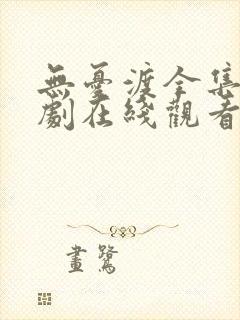 無憂渡全集
劇在綫觀看
畫鷺